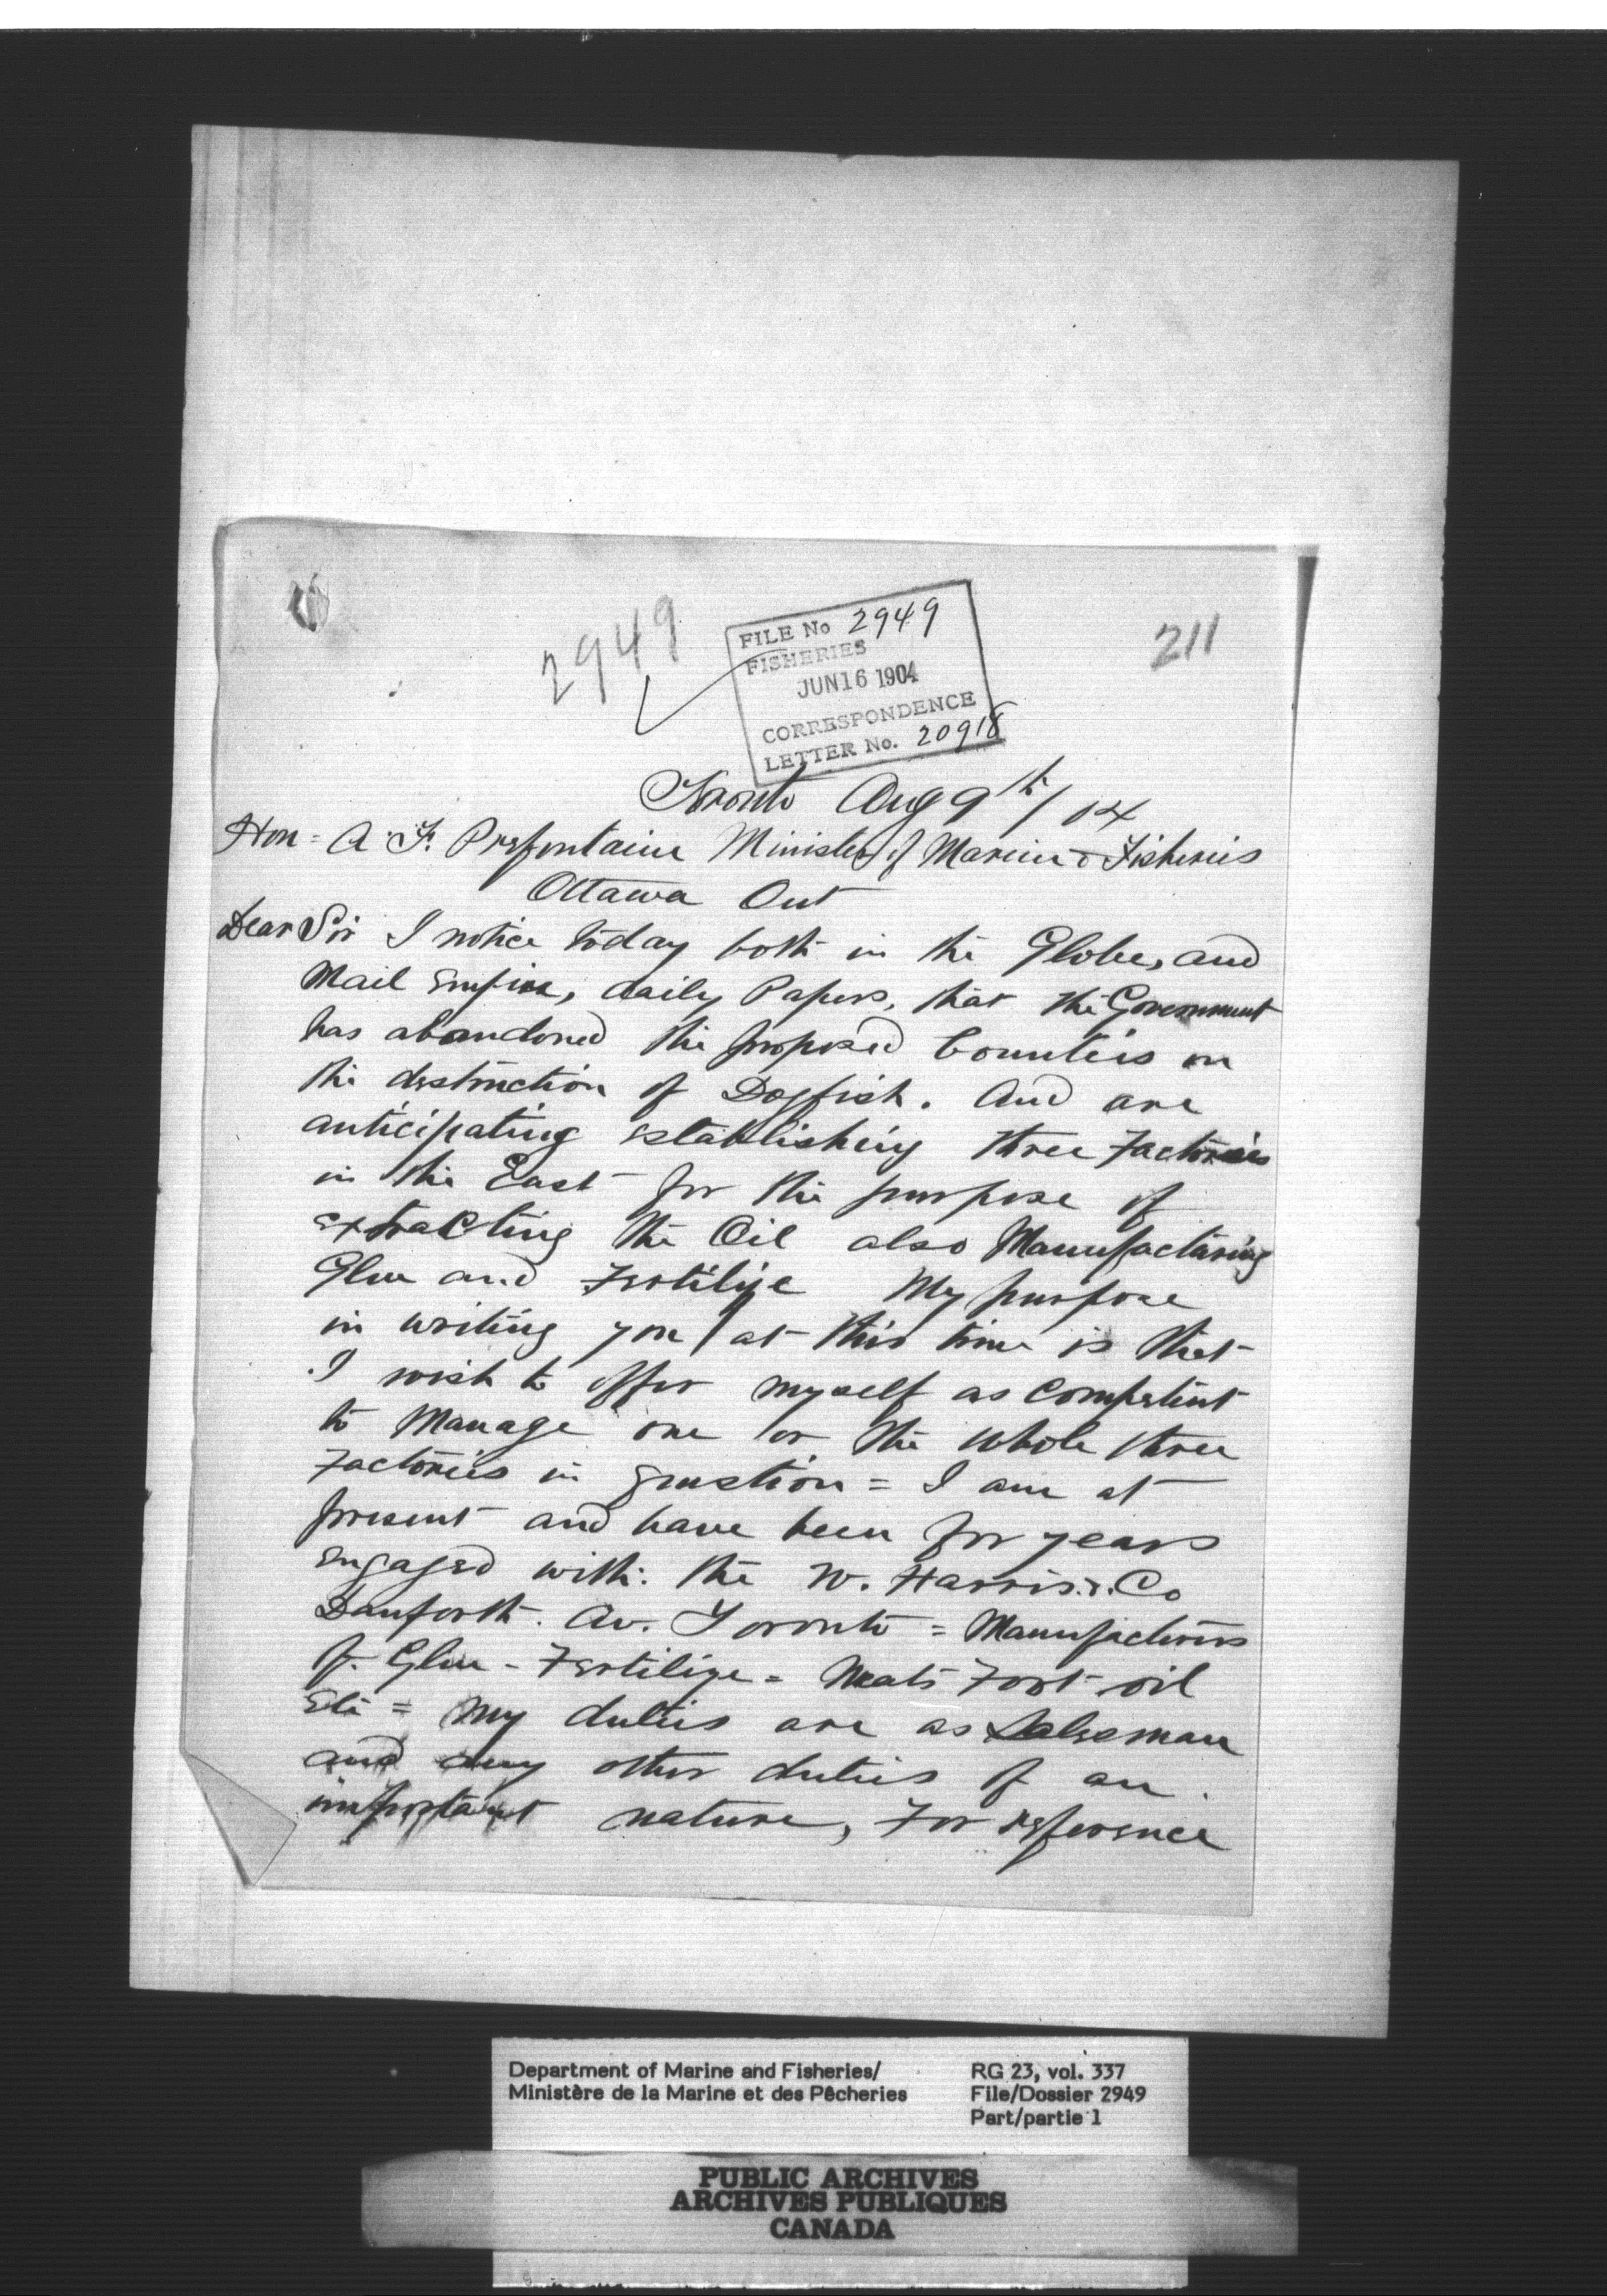 2949
FILE No 2949
FISHERIES
JUN 16 1904
CORRESPONDENCE
LETTER No. 20918
211
Toronto Aug 9th / 04
Hon = A. F. Prefontaine Minister of Marine & Fisheries
Ottawa Ont
Dear Sir I notice today both in the Globe, and
Mail Empire, daily Papers, that the Government
has abandoned the proposed bounties on
the destruction of Dogfish. And are
anticipating establishing three Factories
in the East for the purpose of
extracting the Oil also Manufactaring
Glue and Fertilize My purpose
in writing you at this time is that
I wish to offer myself as Competent
to Manage one or the whole three
Factories in question = I am at
present and have been for years
engaged with the W. Harris & Co
Danforth Av. Toronto = Manufactures
of Glue - Fertilize = Neats Foot oil
Etc = My duties are as Salesman
and any other duties of an
important nature, For reference
Department of Marine and Fisheries/
Ministère de la Marine et des Pêcheries
RG 23, vol. 337
File/Dossier 2949
Part/partie 1
PUBLIC ARCHIVES
ARCHIVES PUBLIQUES
CANADA